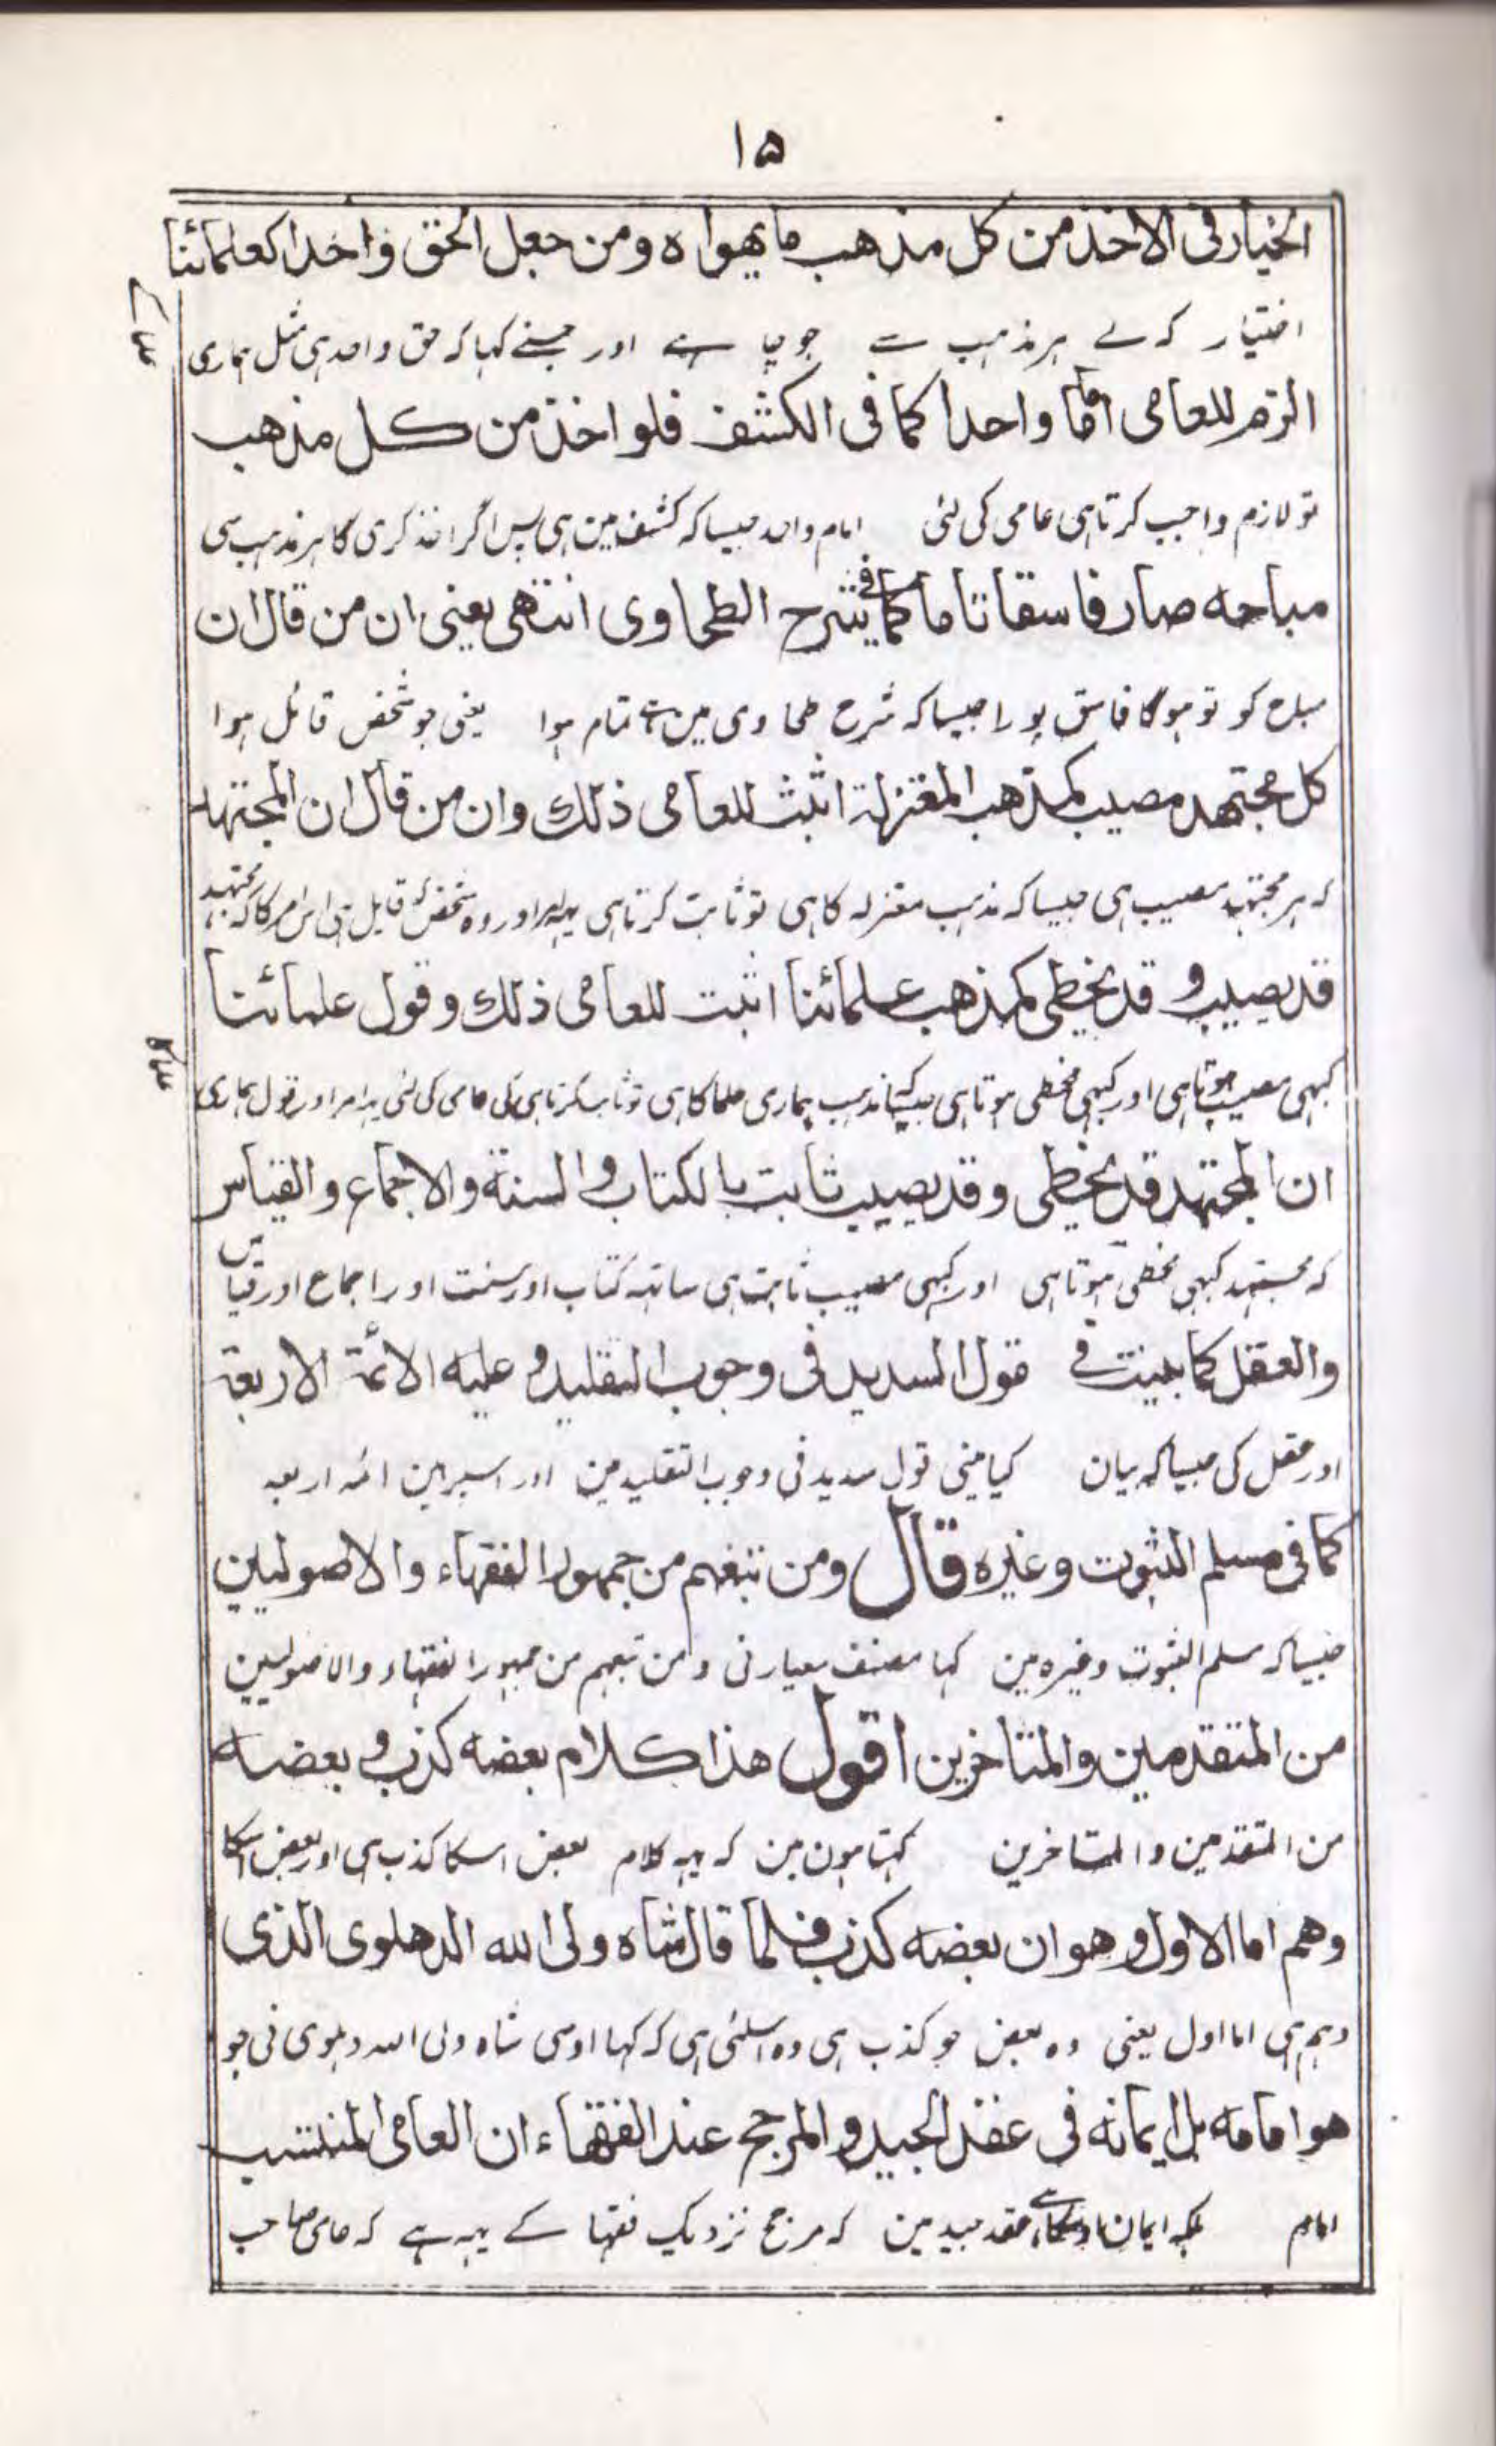 ۱۵
الخیار فی الاخذ من کل مذهب ما یهواه ومن جعل الحق واحدا کعلمائنا
اختیار کہ لے ہر مذہب سے جو چا ہے اور جسنے کہا کہ حق واحد ہی مثل ہماری
الزم للعامی اماما واحدا کما فی الکشف فلو اخذ من کل مذهب
تو لازم واجب کرتا ہی عامی کی لئی امام واحد جیسا کہ کشف مین ہی پس اگر اخذ کری گا ہر مذہب سی
مباحه صار فاسقا تاما کما فی شرح الطحاوی انتهی یعنی ان من قال ان
مباح کو تو ہوگا فاسق پورا جیسا کہ شرح طحاوی مین ہے تمام ہوا یعنی جو شخص قائل ہوا
کل مجتهد مصیب کمذهب المعتزلة اثبت للعامی ذلك وان من قال ان المجتهد
کہ ہر مجتہد مصیب ہی جیسا کہ مذہب معتزلہ کا ہی تو ثابت کرتا ہی یہہ امر اور وہ شخص کہ قایل ہی اس امر کا کہ مجتہد
قد یصیب و قد یخطی کمذهب علمائنا اثبت للعامی ذلك وقول علمائنا
کبہی مصیب ہوتا ہی اور کبہی مخطی ہوتا ہی جیسا کہ مذہب ہماری علما کا ہی تو ثابت کرتا ہی عامی کی لئی یہ امر اور قول ہماری
ان المجتهد قد یخطی وقد یصیب ثابت بالکتاب والسنة والاجماع والقیاس
کہ مجتہد کبہی مخطی ہوتا ہی اور کبہی مصیب ثابت ہی ساتہہ کتاب اور سنت اور اجماع اور قیاس
والعقل کما بینت فی قول السدید فی وجوب التقلید و علیه الائمة الاربعة
اور عقل کی جیسا کہ بیان کیا مینی قول سدید فی وجوب التقلید مین اور اسپر ہین ائمہ اربعہ
کما فی مسلم الثبوت وغیره قال ومن تبعهم من جمهور الفقهاء والاصولیین
جیسا کہ مسلم الثبوت وغیرہ مین کہا مصنف معیار نی ومن تبعہم من جمہور الفقہاء والاصولیین
من المتقدمین والمتاخرین اقول هذا کلام بعضه کذب و بعضه
من المتقدمین والمتاخرین کہتا ہون مین کہ یہہ کلام بعض اسکا کذب ہی اور بعض اسکا
وهم اما الاول و هو ان بعضه کذب فلما قال شاه ولی الله الدهلوی الذی
وہم ہی اما اول یعنی وہ بعض جو کذب ہی وہ اسلئی ہی کہ کہا اوسی شاہ ولی اللہ دہلوی نی جو
هو امامه بل ایمانه فی عقد الجید و المرجح عند الفقهاء ان العامی المنتسب
امام بلکہ ایمان اوسکا ہے عقد جید مین کہ مرجح نزدیک فقہا کے یہہ ہے کہ عامی صاحب